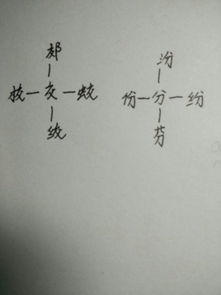 郊
校—交—蛟
绞
汾
份—分—纷
芬